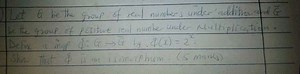 Let G be the group of real numbers under addition and G
be the group of positive real numbers under multiplication.
Define a map Φ: G → G by Φ(x) = 2^x
that Φ is (6 marks)